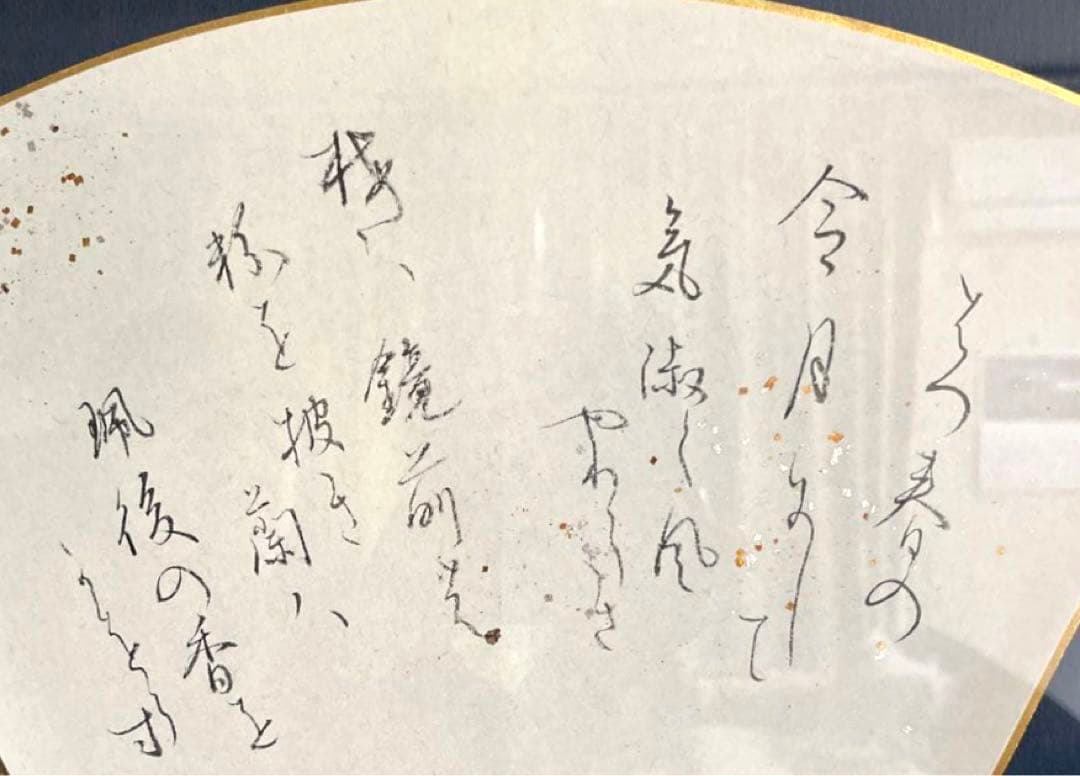 はつ春の
令月にし
て
気淑く風
やわらき
梅ハ鏡前の
粉を披き
蘭ハ
珮後の香を
かをらす